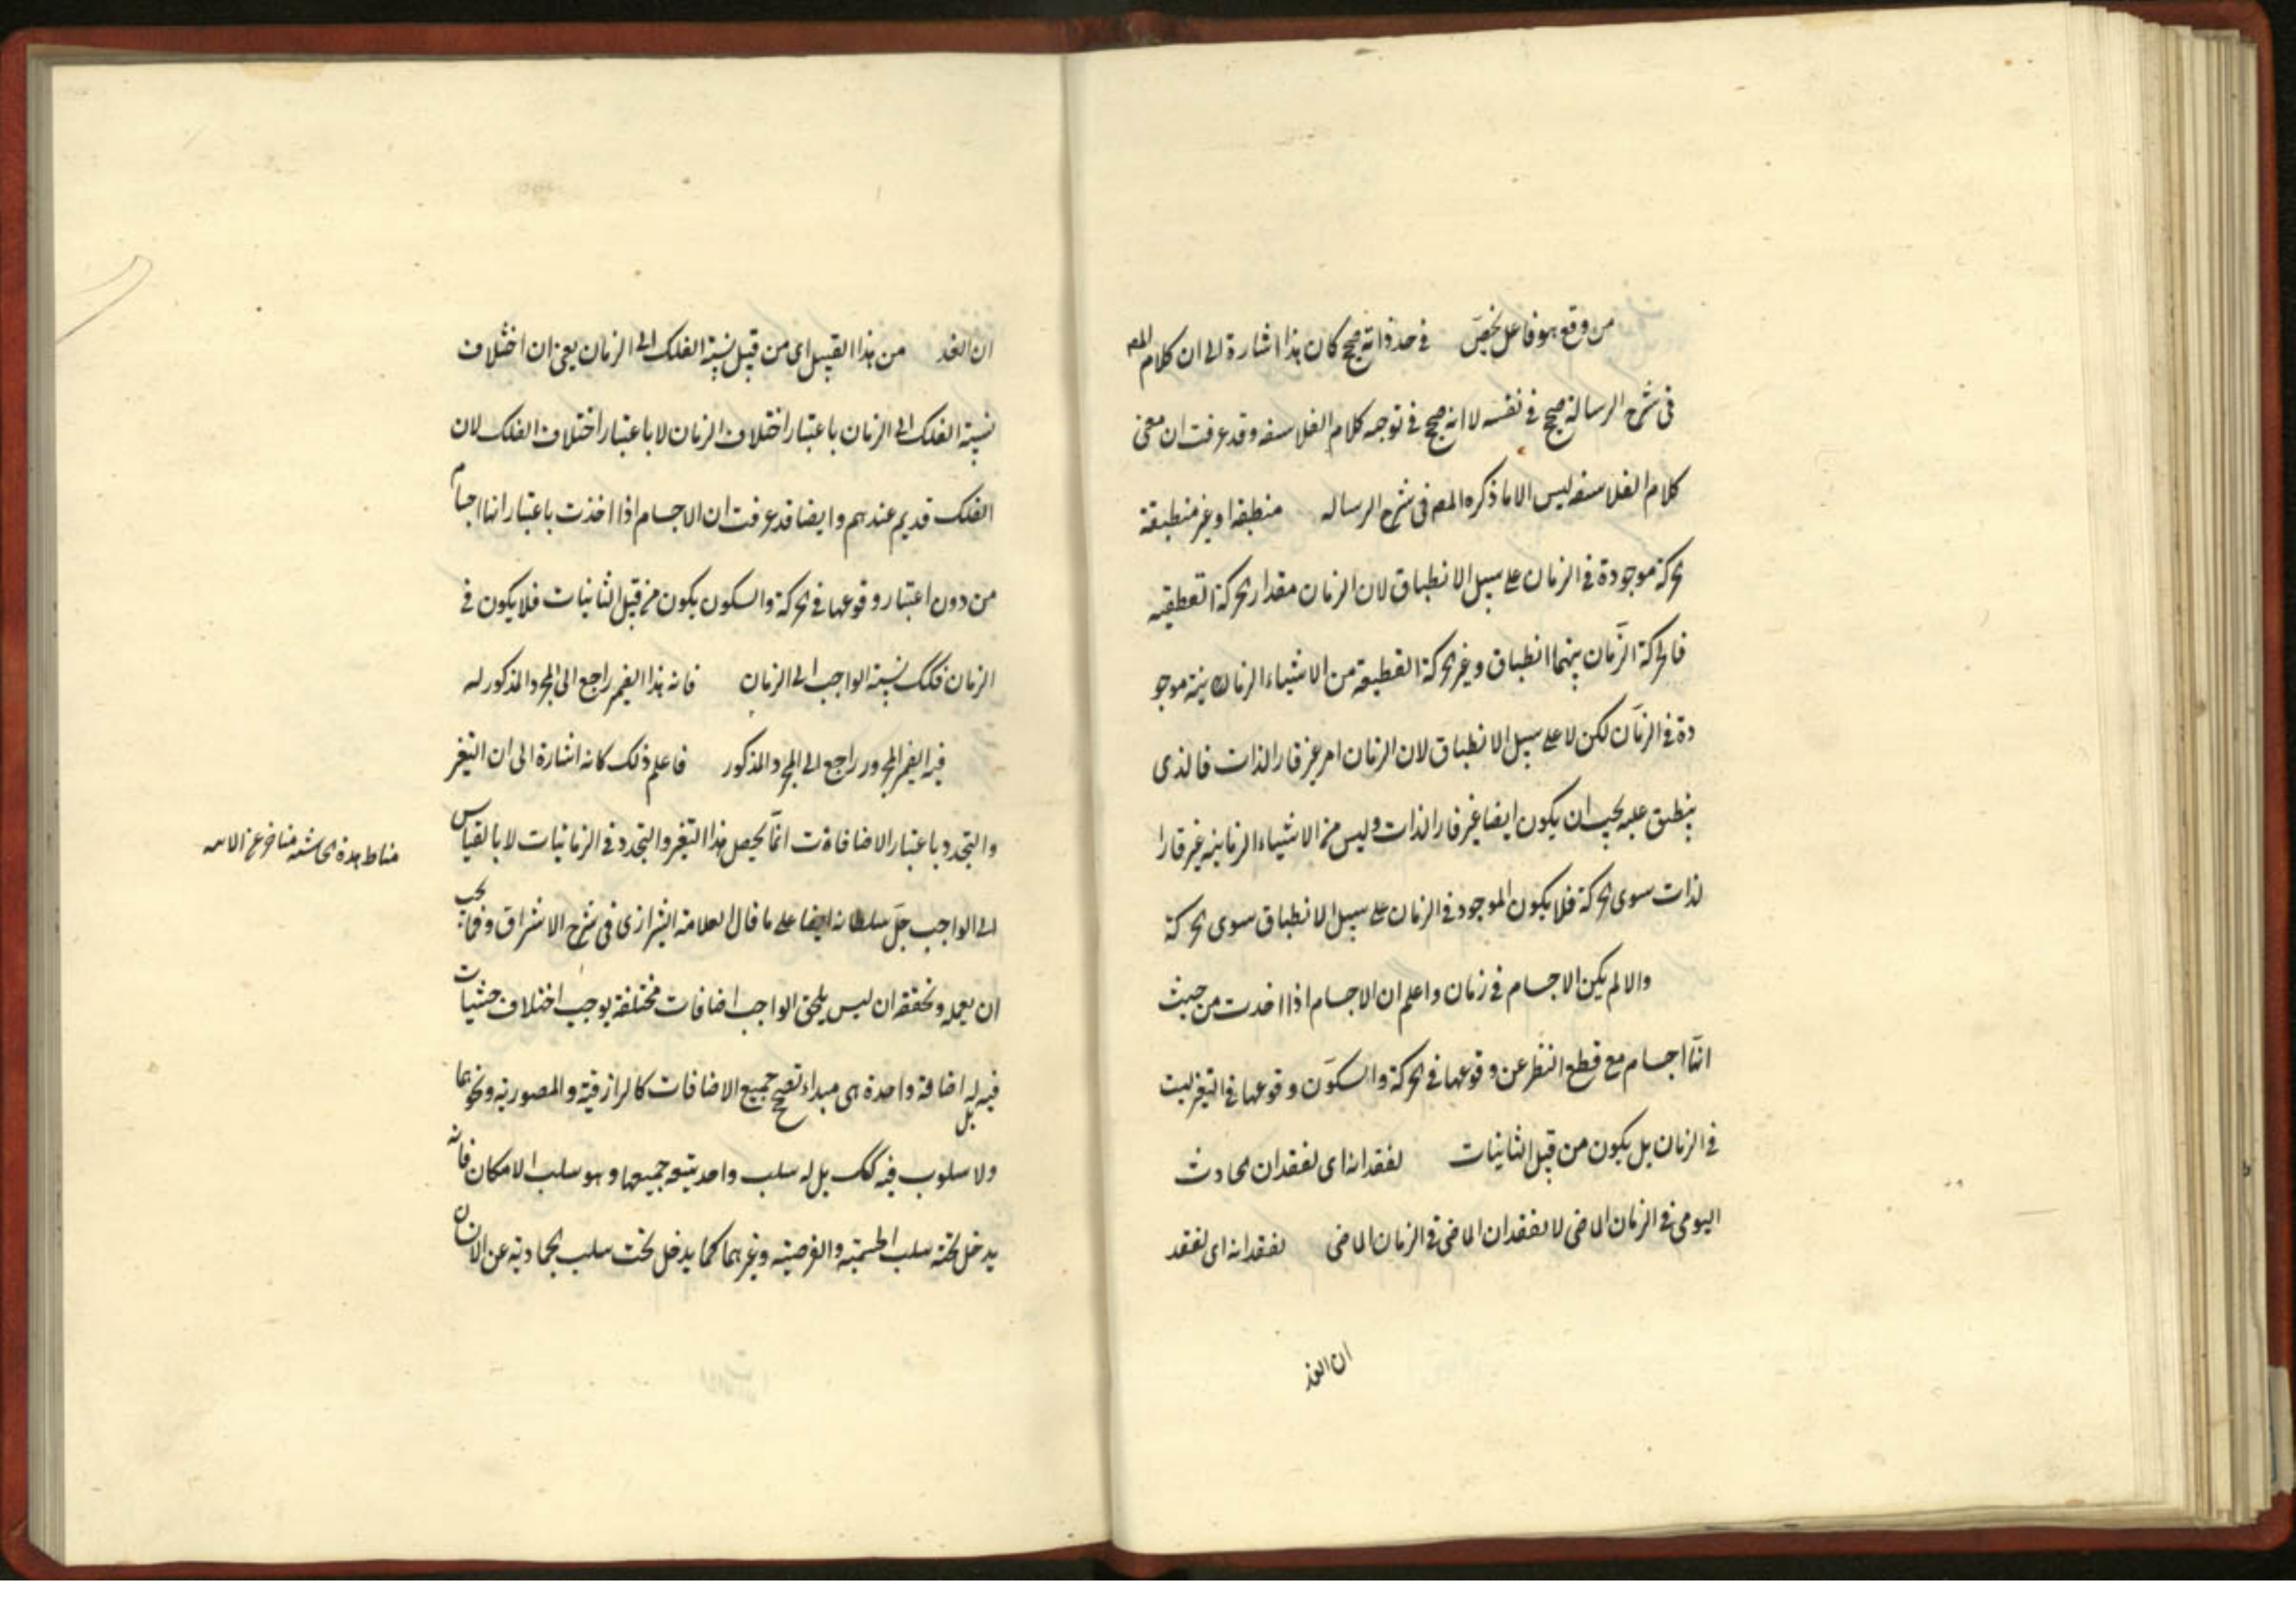 من وقع هو فاعل يخصّ في حد ذاته صحيح كان هذا اشارة الى ان كلام المصـ
في شرح الرسالة صحيح في نفسه لا انه صحيح في توجيه كلام الفلاسفه وقد عرفت ان معنى
كلام الفلاسفه ليس الا ما ذكره المصـ في شرح الرساله منطبقة او غير منطبقة
الحركة موجودة في الزمان على سبيل الانطباق لان الزمان مقدار الحركة القطعيه
فالحركة الزمان بينهما انطباق وغير الحركة القطعية من الاشياء الزمانية موجو
دة في الزمان لكن لا على سبيل الانطباق لان الزمان امر غير قار الذات فالذى
ينطبق عليه يجب ان يكون ايضا غير قار الذات وليس من الاشياء الزمانية غير قار ا
لذات سوى الحركة فلا يكون الموجود في الزمان على سبيل الانطباق سوى الحركة
والا لم يكن الاجسام في زمان واعلم ان الاجسام اذا اخذت من حيث
انها اجسام مع قطع النظر عن وقوعها في الحركة والسكون وقوعها في التغير ليست
في الزمان بل يكون من قبيل الثابتات لفقدانه اى لفقدان الحادث
اليومى في الزمان الماضى لا لفقدان الماضى في الزمان الماضى لفقدانه اى لفقد
ان الغد
ان الغد من هذا القبيل اى من قبيل نسبة الفلك الى الزمان يعنى ان اختلاف
نسبة الفلك الى الزمان باعتبار اختلاف الزمان لا باعتبار اختلاف الفلك لان
الفلك قديم عندهم وايضا قد عرفت ان الاجسام اذا اخذت باعتبار انها اجسام
من دون اعتبار وقوعها في الحركة والسكون يكون من قبيل الثابتات فلا يكون في
الزمان فكك نسبة الواجب الى الزمان فانه هذا الضمير راجع الى المجرد المذكور له
فيه الضمير المجرور راجع الى المجرد المذكور فاعلم ذلك كانه اشارة الى ان التغير
والتجدد باعتبار الاضافات انما يحصل هذا التغير والتجدد في الزمانيات لا بالقياس
الى الواجب جل سلطانه ايضا على ما قال العلامه الشيرازى في شرح الاشراق ومما يجب
ان يعلمه ونحققه ان ليس يلحق الواجب اضافات مختلفة يوجب اختلاف حيثيات
فيه بل له اضافة واحدة هى مبداء تصح جميع الاضافات كالرازقية والمصورية ونحوهما
ولا سلوب فيه كك بل له سلب واحد يتبعه جميعها وهو سلب الامكان فانه
يدخل تحته سلب الجسمية والعرضية وغيرهما كما يدخل تحت سلب الجمادية عن الانسان
مناط هذه الحاشيه